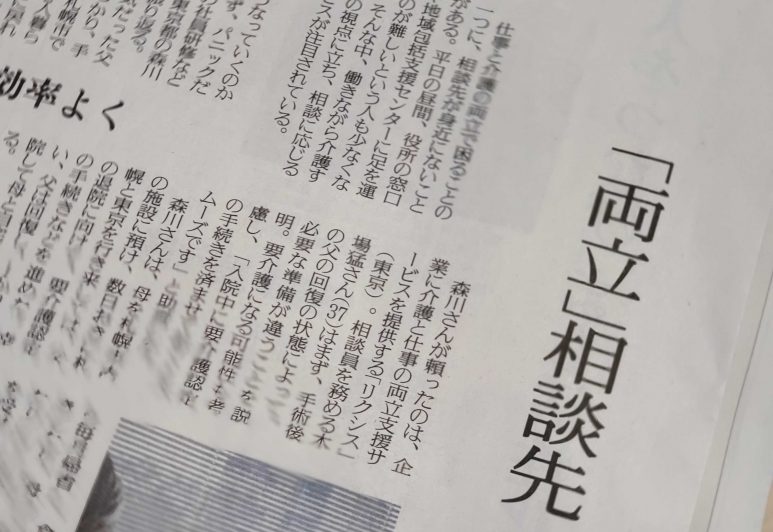 「両立」相談先
仕事と介護の両立で困ることの
一つに、相談先が身近にないこと
がある。平日の昼間、役所の窓口
地域包括支援センターに足を運
のが難しいという人も少なくな
そんな中、働きながら介護す
の視点に立ち、相談に応じる
スが注目されている。
うなっていくのか
ず、パニックだ
社員研修など
東京都の森川
振り返る。
たった父
かり、手
札幌市で
人暮ら
に戻れ
効率よく
森川さんが頼ったのは、企
業に介護と仕事の両立支援サ
ービスを提供する「リクシス」
（東京）。相談員を務める木
場猛さん（37）はまず、手術後
の父の回復の状態によっ
必要な準備が違うことを説
明。要介護になる可能性を考
慮し、「入院中に要介護認定
の手続きを済ませ
ムーズです」と助
森川さんは、母を札幌市内
の施設に預け、数日おき
幌と東京を行き来
の退院に向け
の手続きなどを進めた
い、父は回復し
院して母と
る。
毎月帰省